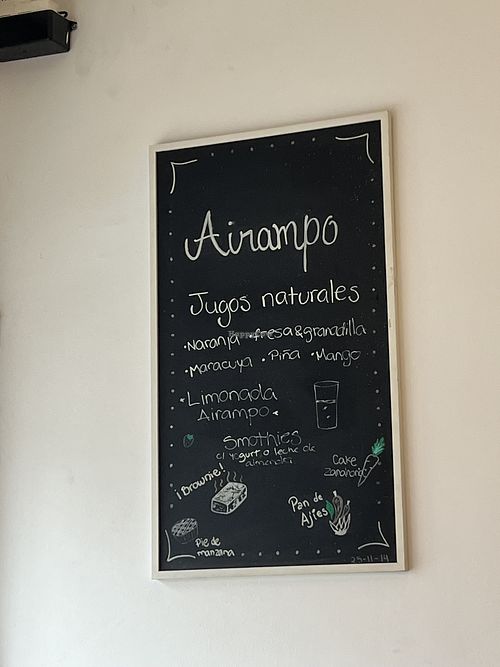 Airampo
Jugos naturales
•Naranja •fresa&granadilla
•Maracuya •Piña •Mango
•Limonada
Airampo•
Smothies
c/ yogurt o leche de
almendra
¡Brownie!
Cake
zanahoria
Pan de
Ajíes
Pie de
manzana